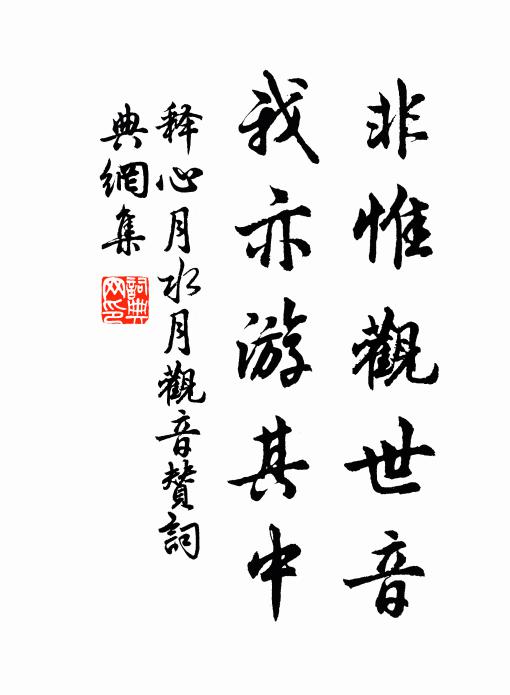 非惟觀世音
我亦游其中
释心月水月觀音贊詞
典網集
詞典
网印